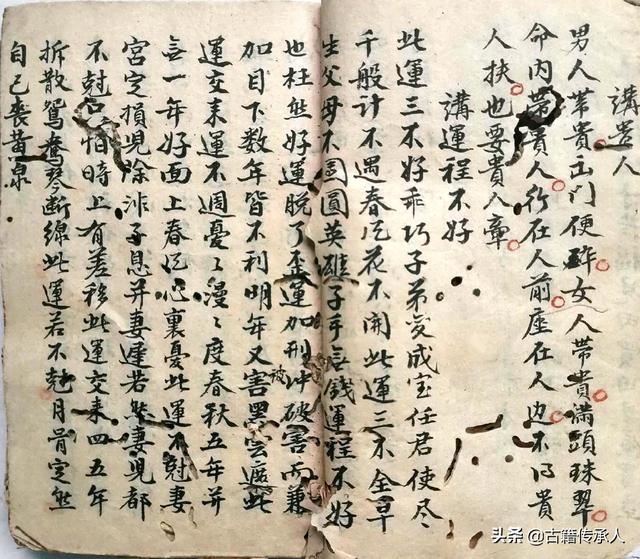 講貴人
男人帶貴出門便 女人帶貴滿頭珠翠
命內帶貴人行在人前座在人边不得貴
人扶也要貴人牽
講運程不好
此運三不好乖巧子弟变成 任君使尽
千般計不遇春风花不開此運三不全草
生父母不团圓英雄子手無錢運程不好
也枉然好運脫了歪運加刑冲破害两兼
加目下数年皆不利明年又害被黑雲遮此
運交来運不週憂憂漫漫度春秋五年并
無一年好面上春风心裏憂此運不尅妻
宮定損児除非子息并妻遲若然妻児都
不尅只怕時上有差移此運交来四五年
拆散鴛鴦琴断線此運若不尅月骨定然
自己喪黄泉
头条@古籍传承人